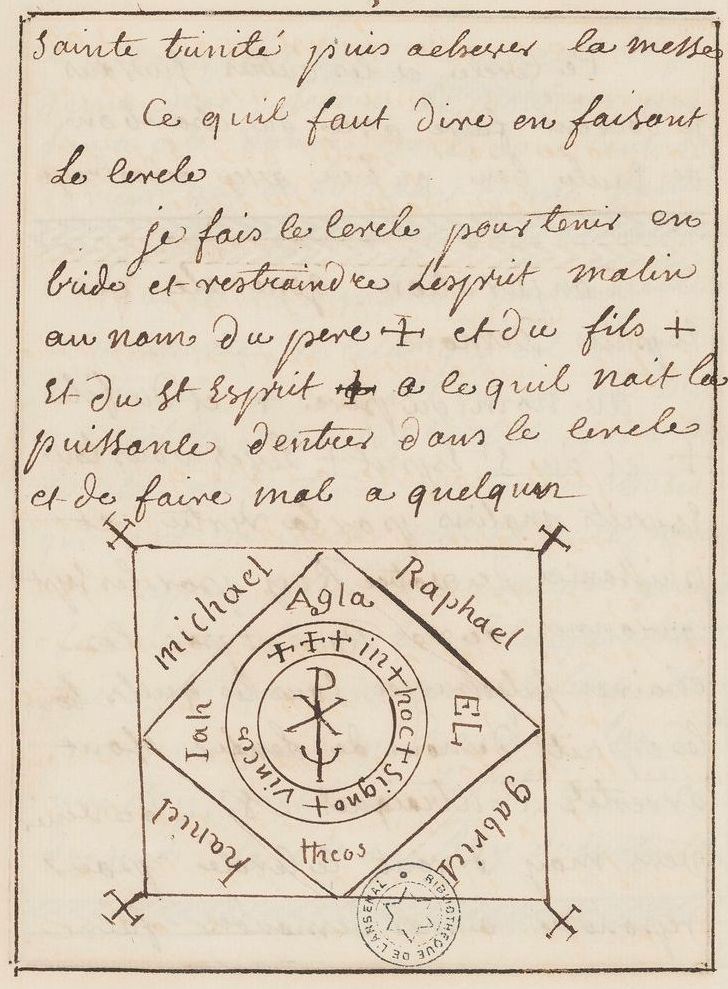 Sainte trinité puis achever la messe
Ce quil faut dire en faisant
Le cercle
je fais le cercle pour tenir en
bride et restraindre Lesprit malin
au nom du pere + et du fils +
Et du St Esprit + a ce quil nait la
puissance dentrer dans le cercle
et de faire mal a quelqun
michael
Raphael
Agla
+++ in + hoc + signo + vinces
Iah
EL
haniel
theos
gabriel
BIBLIOTHEQUE DE L'ARSENAL